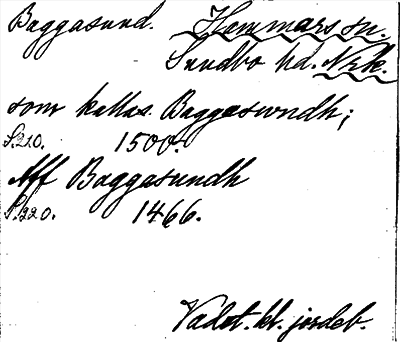 Baggasund. Hammars sn.
Sundbo hd. Nrk.
som kallas Baggaswndh;
S. 210. 1500.
Aff Baggasundh
S. 220. 1466.
Vadst. kl. jordeb.